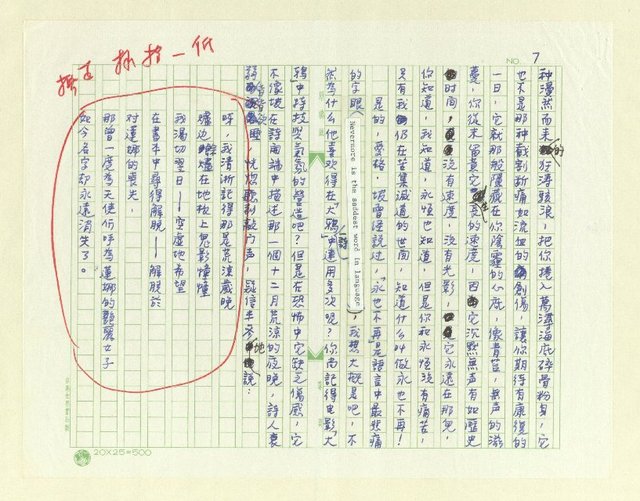 NO. 7
種漫然而來的狂濤駭浪，把你捲入萬濤海底碎骨粉身，它
也不是那種戳割斷痛如流血的創傷，讓你期待有康復的
一日，它就那般隱藏在你陰霾的心底，像青苔，無聲的滋
蔓，你從來窺覺它生長的速度，因它沉默無聲有如歷史
時間，沒有速度，沒有光影，它永遠在那兒，
你知道，我知道，永恆也知道，但是你和永恆沒有痛苦，
只有我仍在苦集滅道的世間，知道什么叫做永也不再！
是的，愛倫．坡曾經說过，「永也不再是語言中最悲痛
的字眼」（Nevermore is the saddest word in language），我想大概是吧，不
然為什么他喜欢得在「大鴉」一詩中運用多次呢？你尚記得电影「大
鴉」中持技與氣氛的營造吧？但是在恐怖中它缺乏傷感，它
不像坡在詩開端中描述那一個十二月荒涼的夜晚，詩人衰
弱疲困，恍惚聽到敲门声，疑惇未參地說：
呀，我清淅記得那是荒凉歲晚
爐边燼在地板上鬼影幢幢
我渴切翌日——空虛地希望
在書本中尋得解脫——解脫於
對蓮娜的喪失，
那曾一度為天使们呼為蓮娜的艷麗女子
如今名字却永遠消失了。
擔正 楷 一低
20X25=500